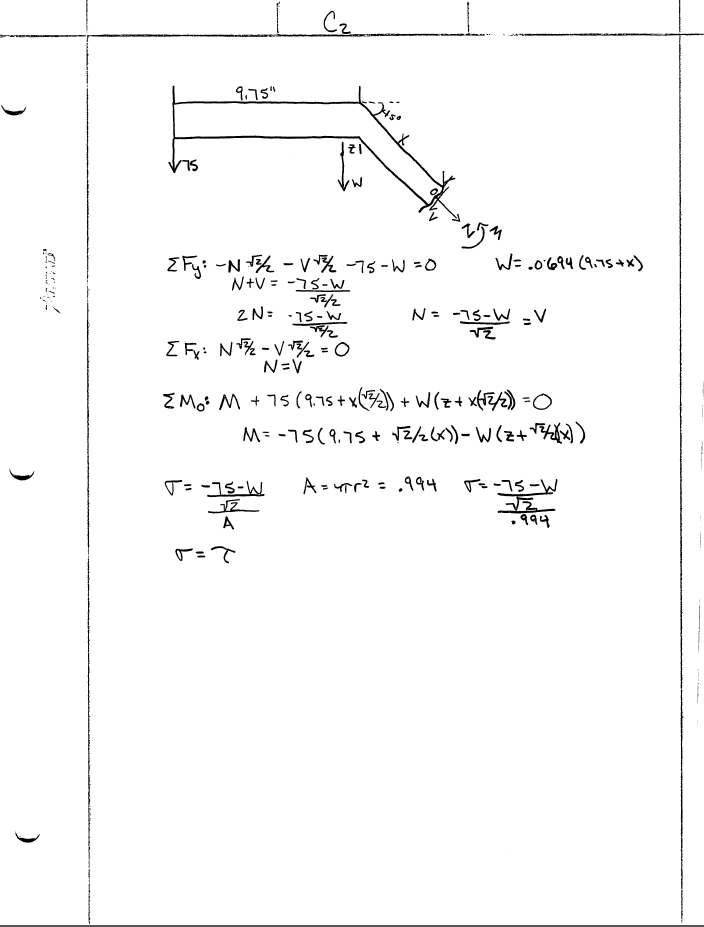 C₂
9.75"
45°
x
75
z
W
V
N
ΣFy: -N √2/2 - V √2/2 - 75 - W = 0    W = .0694 (9.75+x)
N+V = (-75-W)/(√2/2)
2N = (-75-W)/(√2/2)    N = (-75-W)/√2 = V
ΣFx: N √2/2 - V √2/2 = 0
N = V
ΣMo: M + 75 (9.75 + x(√2/2)) + W(z + x(√2/2)) = 0
M = -75(9.75 + √2/2(x)) - W(z + √2/2(x))
σ = ((-75-W)/√2)/A    A = πr² = .994    σ = ((-75-W)/√2)/.994
σ = τ